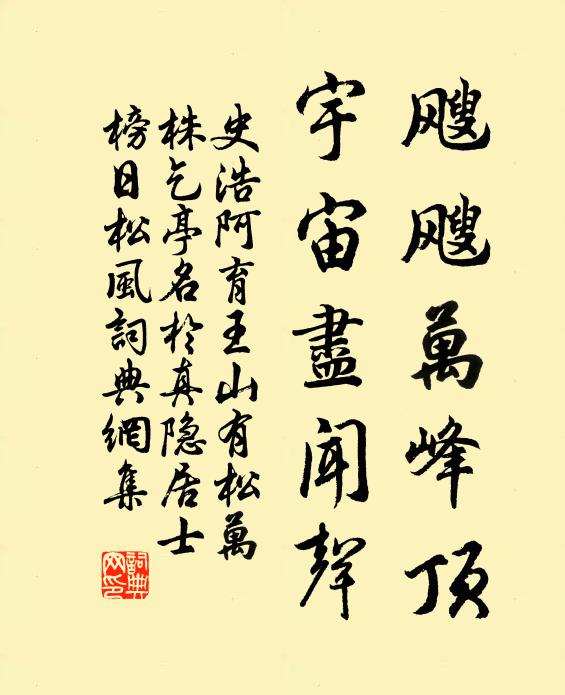 颼颼萬峰頂
宇宙盡聞聲
史浩阿育王山有松萬
株乞亭名於真隐居士
榜曰松風詞典網集
詞典
网印